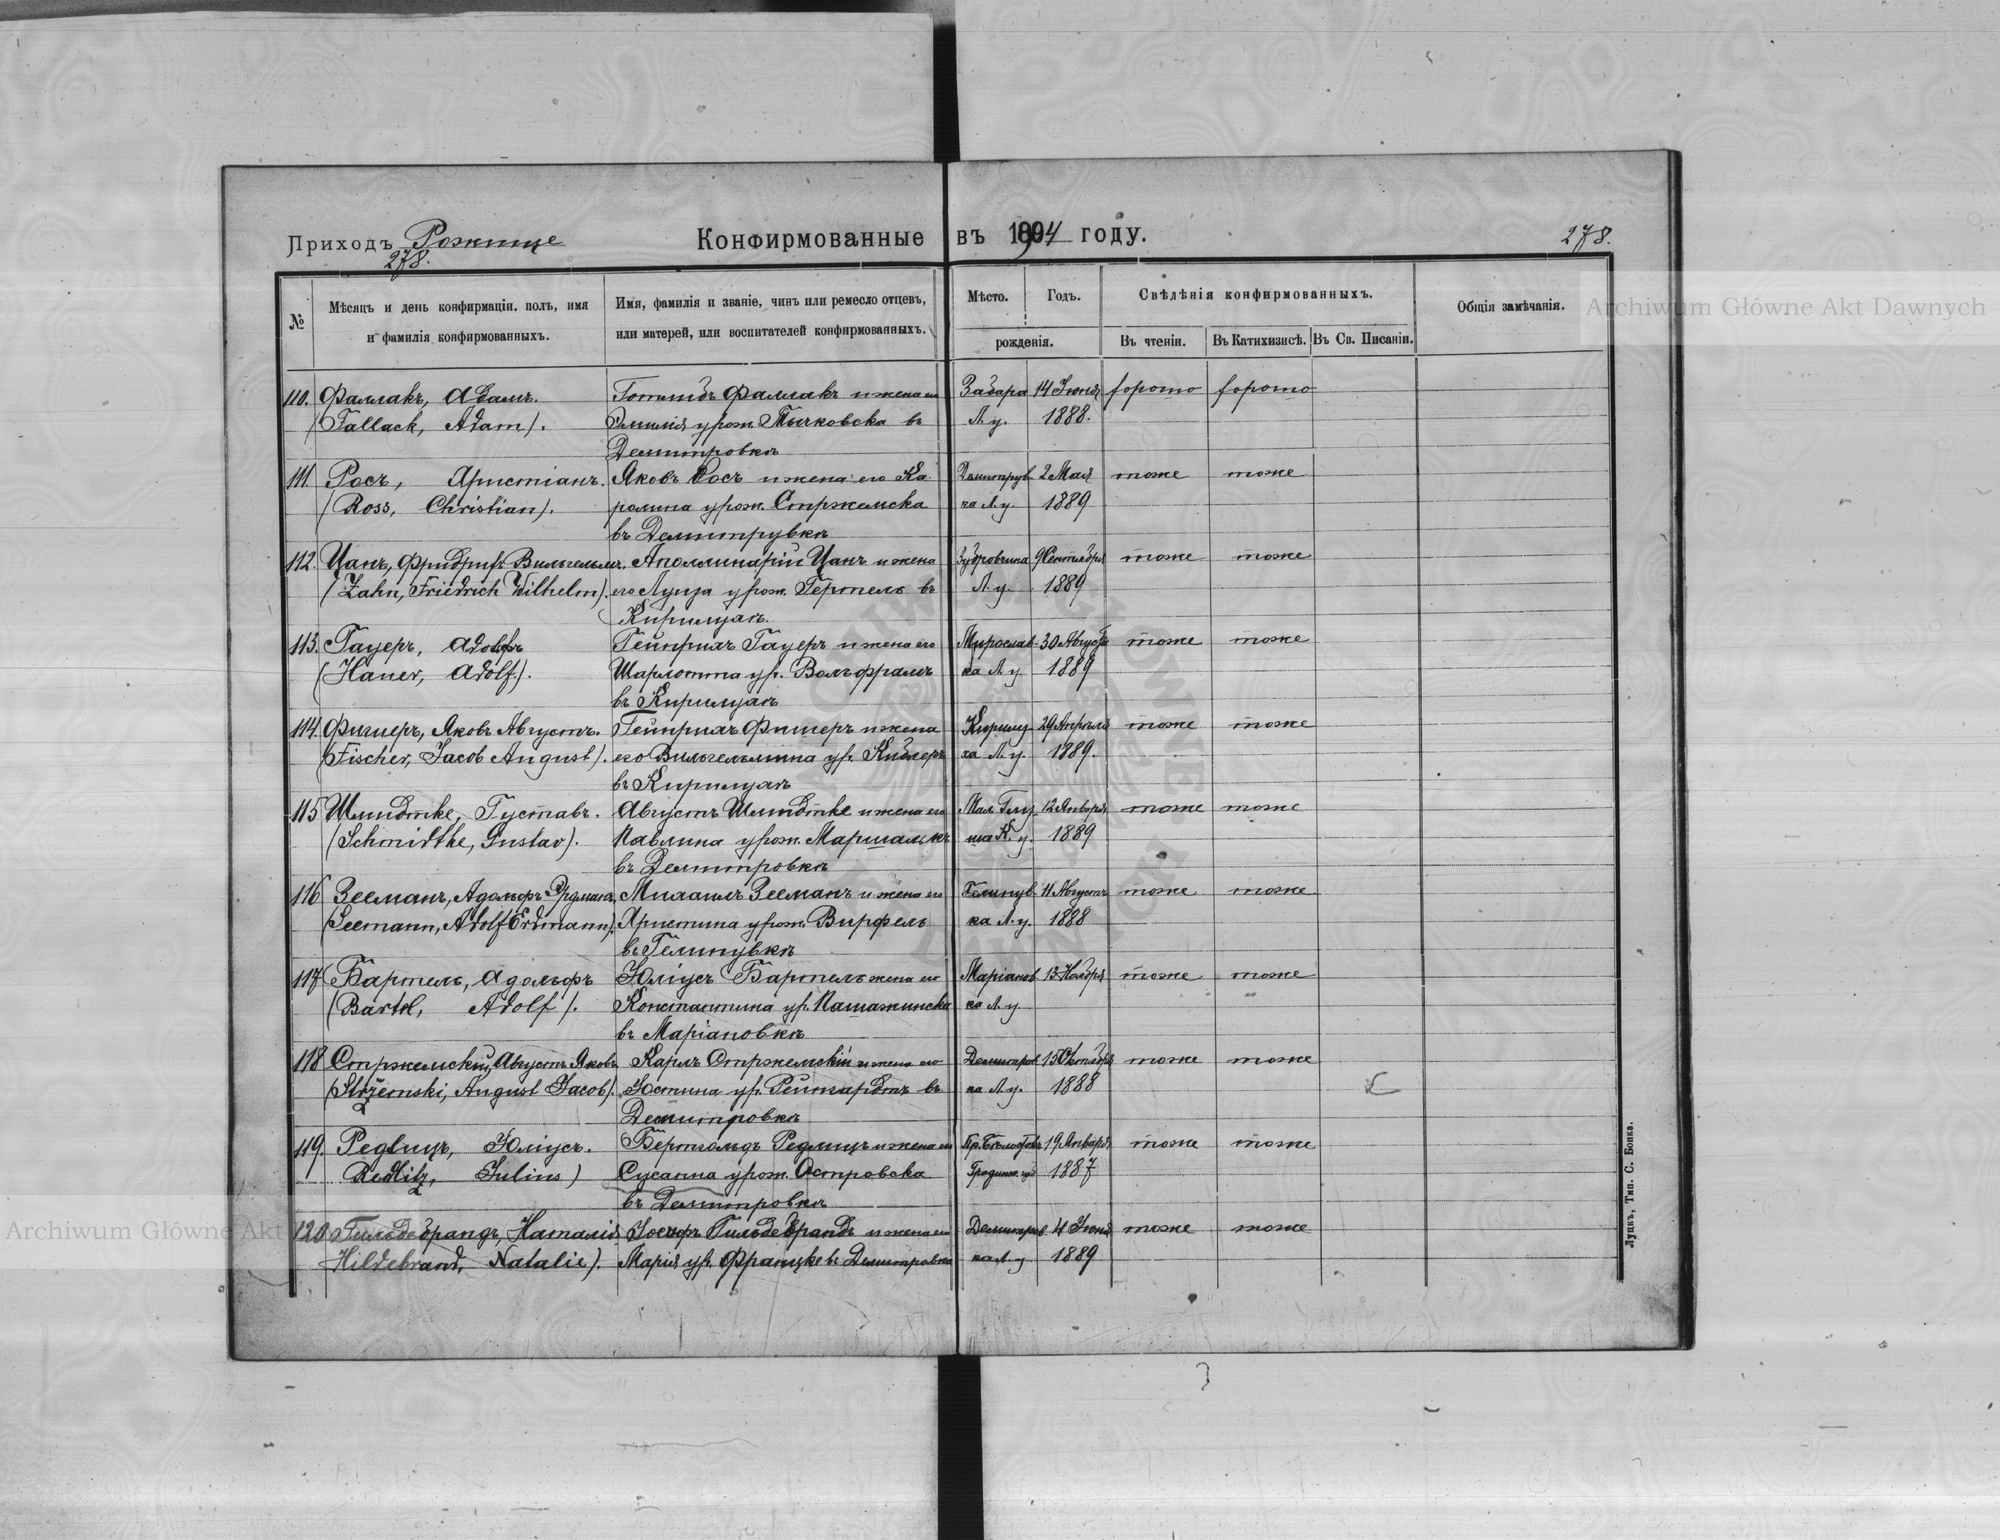 Приходъ Рожище
278.
Конфирмованные въ 1904 году.
278.
№
Мѣсяцъ и день конфирмаціи, полъ, имя
и фамилія конфирмованныхъ.
Имя, фамилія и званіе, чинъ или ремесло отцевъ,
или матерей, или воспитателей конфирмованныхъ.
Мѣсто.
Годъ.
рожденія.
Свѣдѣнія конфирмованныхъ.
Въ чтеніи.
Въ Катихизисѣ.
Въ Св. Писаніи.
Общія замѣчанія.
Archiwum Główne Akt Dawnych
110. Фаллакъ, Адамъ. Готлибъ Фаллакъ и жена его Забара 14 Іюня хорошо хорошо
(Fallach, Adam). Эмилія урож. Тычковска въ Л. у. 1888.
Демитровкѣ
111. Росъ, Христіанъ. Яковъ Росъ и жена его Ка- Демитрув- 2 Мая тоже тоже
(Ross, Christian). ролина урож. Стржемска ка Л. у. 1889
въ Демитрувкѣ
112. Цанъ, Фридрихъ Вильгельмъ. Аполлинарій Цанъ и жена 9 Сентября тоже тоже
(Zahn, Friedrich Wilhelm). его Луиза урож. Гертель въ Л. у. 1889
Кирилухѣ.
113. Гауеръ, Адольфъ Гейнрихъ Гауеръ и жена его Мирослав- 30 Августа тоже тоже
(Hauer, Adolf). Шарлотта ур. Вольфрамъ ка Л. у. 1889
въ Кирилухѣ
114. Фишеръ, Яковъ Августъ. Гейнрихъ Фишеръ и жена Кирилу- 29 Апрѣля тоже тоже
(Fischer, Jacob August). его Вильгельмина ур. Киблеръ ха Л. у. 1889.
въ Кирилухѣ
115 Шмидтке, Густавъ. Августъ Шмидтке и жена его Мал. 12 Января тоже тоже
(Schmidtke, Gustav). Павлина урож. Маршалькъ ша К. у. 1889
въ Демитровкѣ
116 Зееманъ, Адольфъ Эрдманъ. Михаилъ Зееманъ и жена его Гелинув- 11 Августа тоже тоже
(Seemann, Adolf Erdmann). Христина урож. Вирфель ка Л. у. 1888
въ Гелинувкѣ
117 Бартель, Адольфъ Юліусъ Бартель жена его Маріанов- 13 Ноября тоже тоже
(Bartel, Adolf). Константина ур. Пашажинска ка Л. у.
въ Маріановкѣ
118 Стржемскій, Августъ Яковъ. Карлъ Стржемскій и жена его Демитров- 15 Октября тоже тоже
(Strzemski, August Jacob). Юстина ур. Рейнгардтъ въ ка Л. у. 1888
Демитровкѣ
119. Редлицъ, Юліусъ. Бертгольдъ Редлицъ и жена его 19 Января тоже тоже
Redlitz, Julius) Сусанна урож. Островска 1887
въ Демитровкѣ
120 Гильдебрандъ, Наталія Іосифъ Гильдебрандъ и жена его Демитров- 4 Іюня тоже тоже
Hildebrand, Natalie). Марія ур. Францке въ Демитровкѣ ка Л. у 1889
Archiwum Główne Akt
Луцкъ, Тип. С. Бонка.